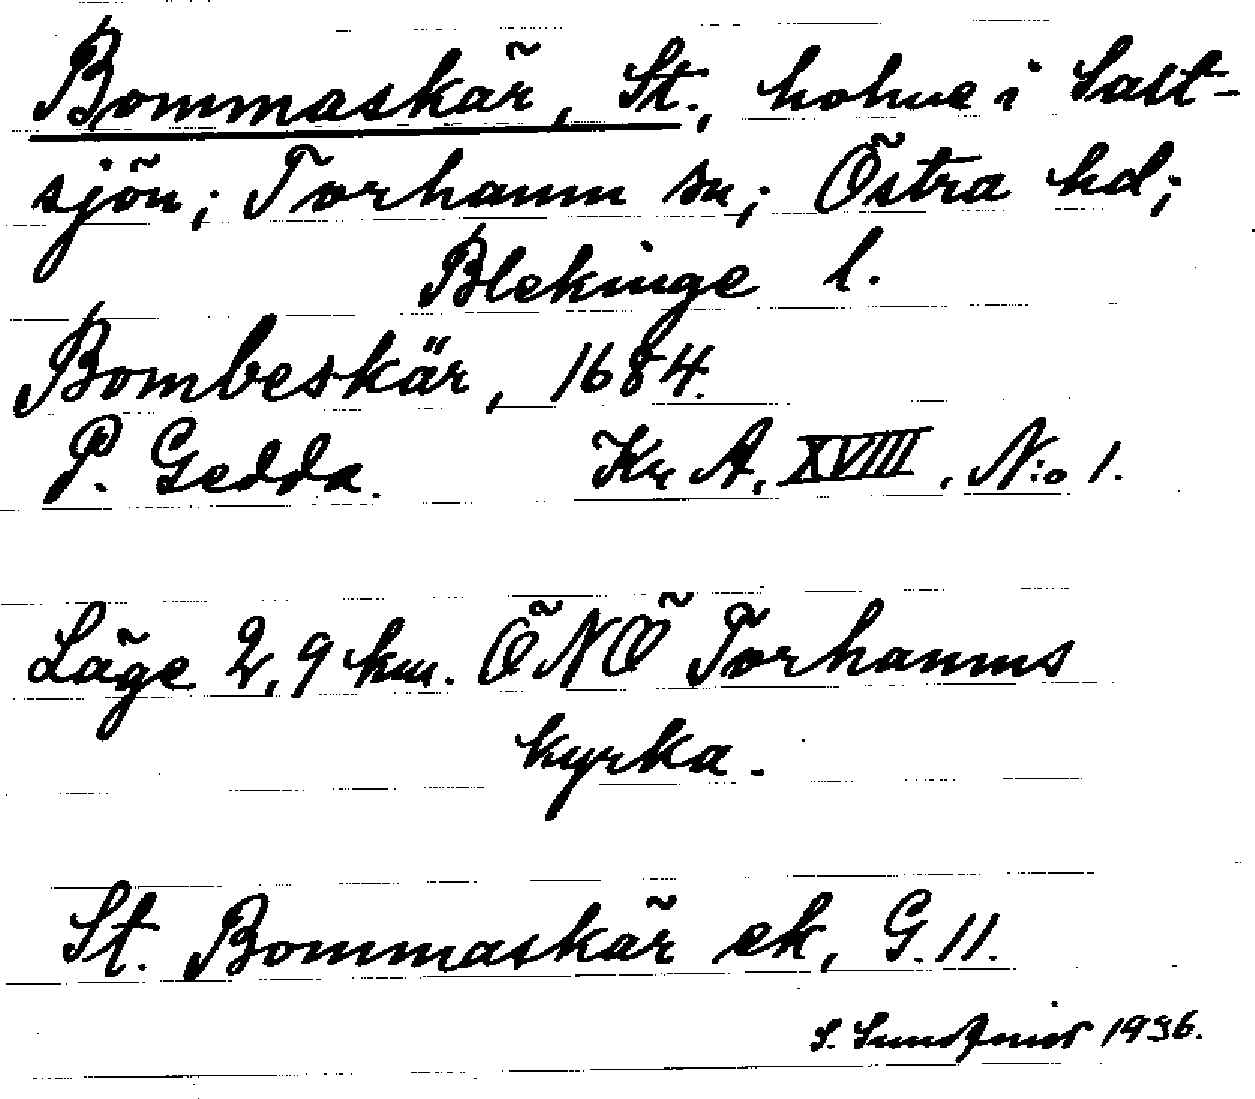 Bommaskär, St., holme i Salt-
sjön; Torhamn sn; Östra hd;
Blekinge l.
Bombeskär, 1684.
P. Gedda. Kr A, XVIII, N:o 1.
Läge 2,9 km. ÖNÖ Torhamns
kyrka.
St. Bommaskär ek, G. 11.
S. 1936.